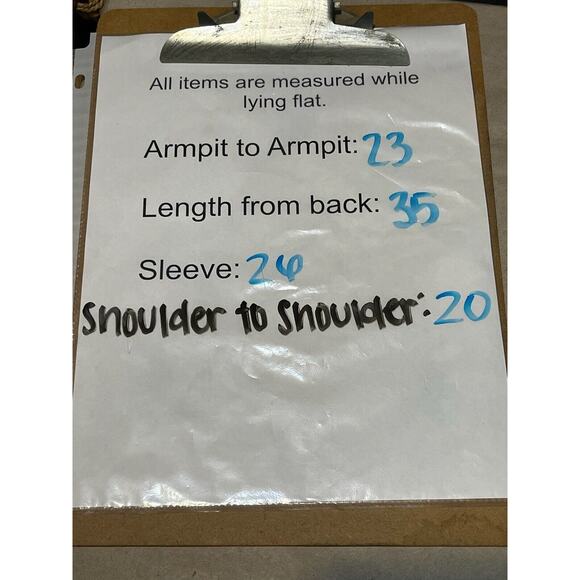 All items are measured while
lying flat.
Armpit to Armpit: 23
Length from back: 35
Sleeve: 26
Shoulder to Shoulder: 20